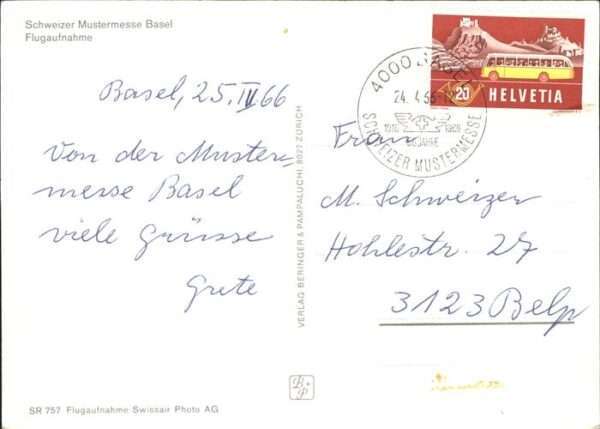 Schweizer Mustermesse Basel
Flugaufnahme
Basel, 25. IV 66
Von der Muster-
messe Basel
viele Grüsse
Grete
SR 757 Flugaufnahme Swissair Photo AG
VERLAG BERINGER & PAMPALUCHI, 8027 ZÜRICH
B P
20 HELVETIA
4000 BASEL
24.4.66-12
1916 1966
50 JAHRE
SCHWEIZER MUSTERMESSE
Frau
M. Schweizer
Hohlestr. 27
3123 Belp